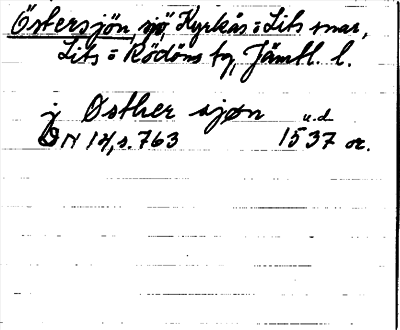 Östersjön, sjö, Kyrkås o Lits snar,
Lits o Rödöns tg, Jämtl. l.
j Østher sjøn u.d
DN 14, s. 763 1537 or.